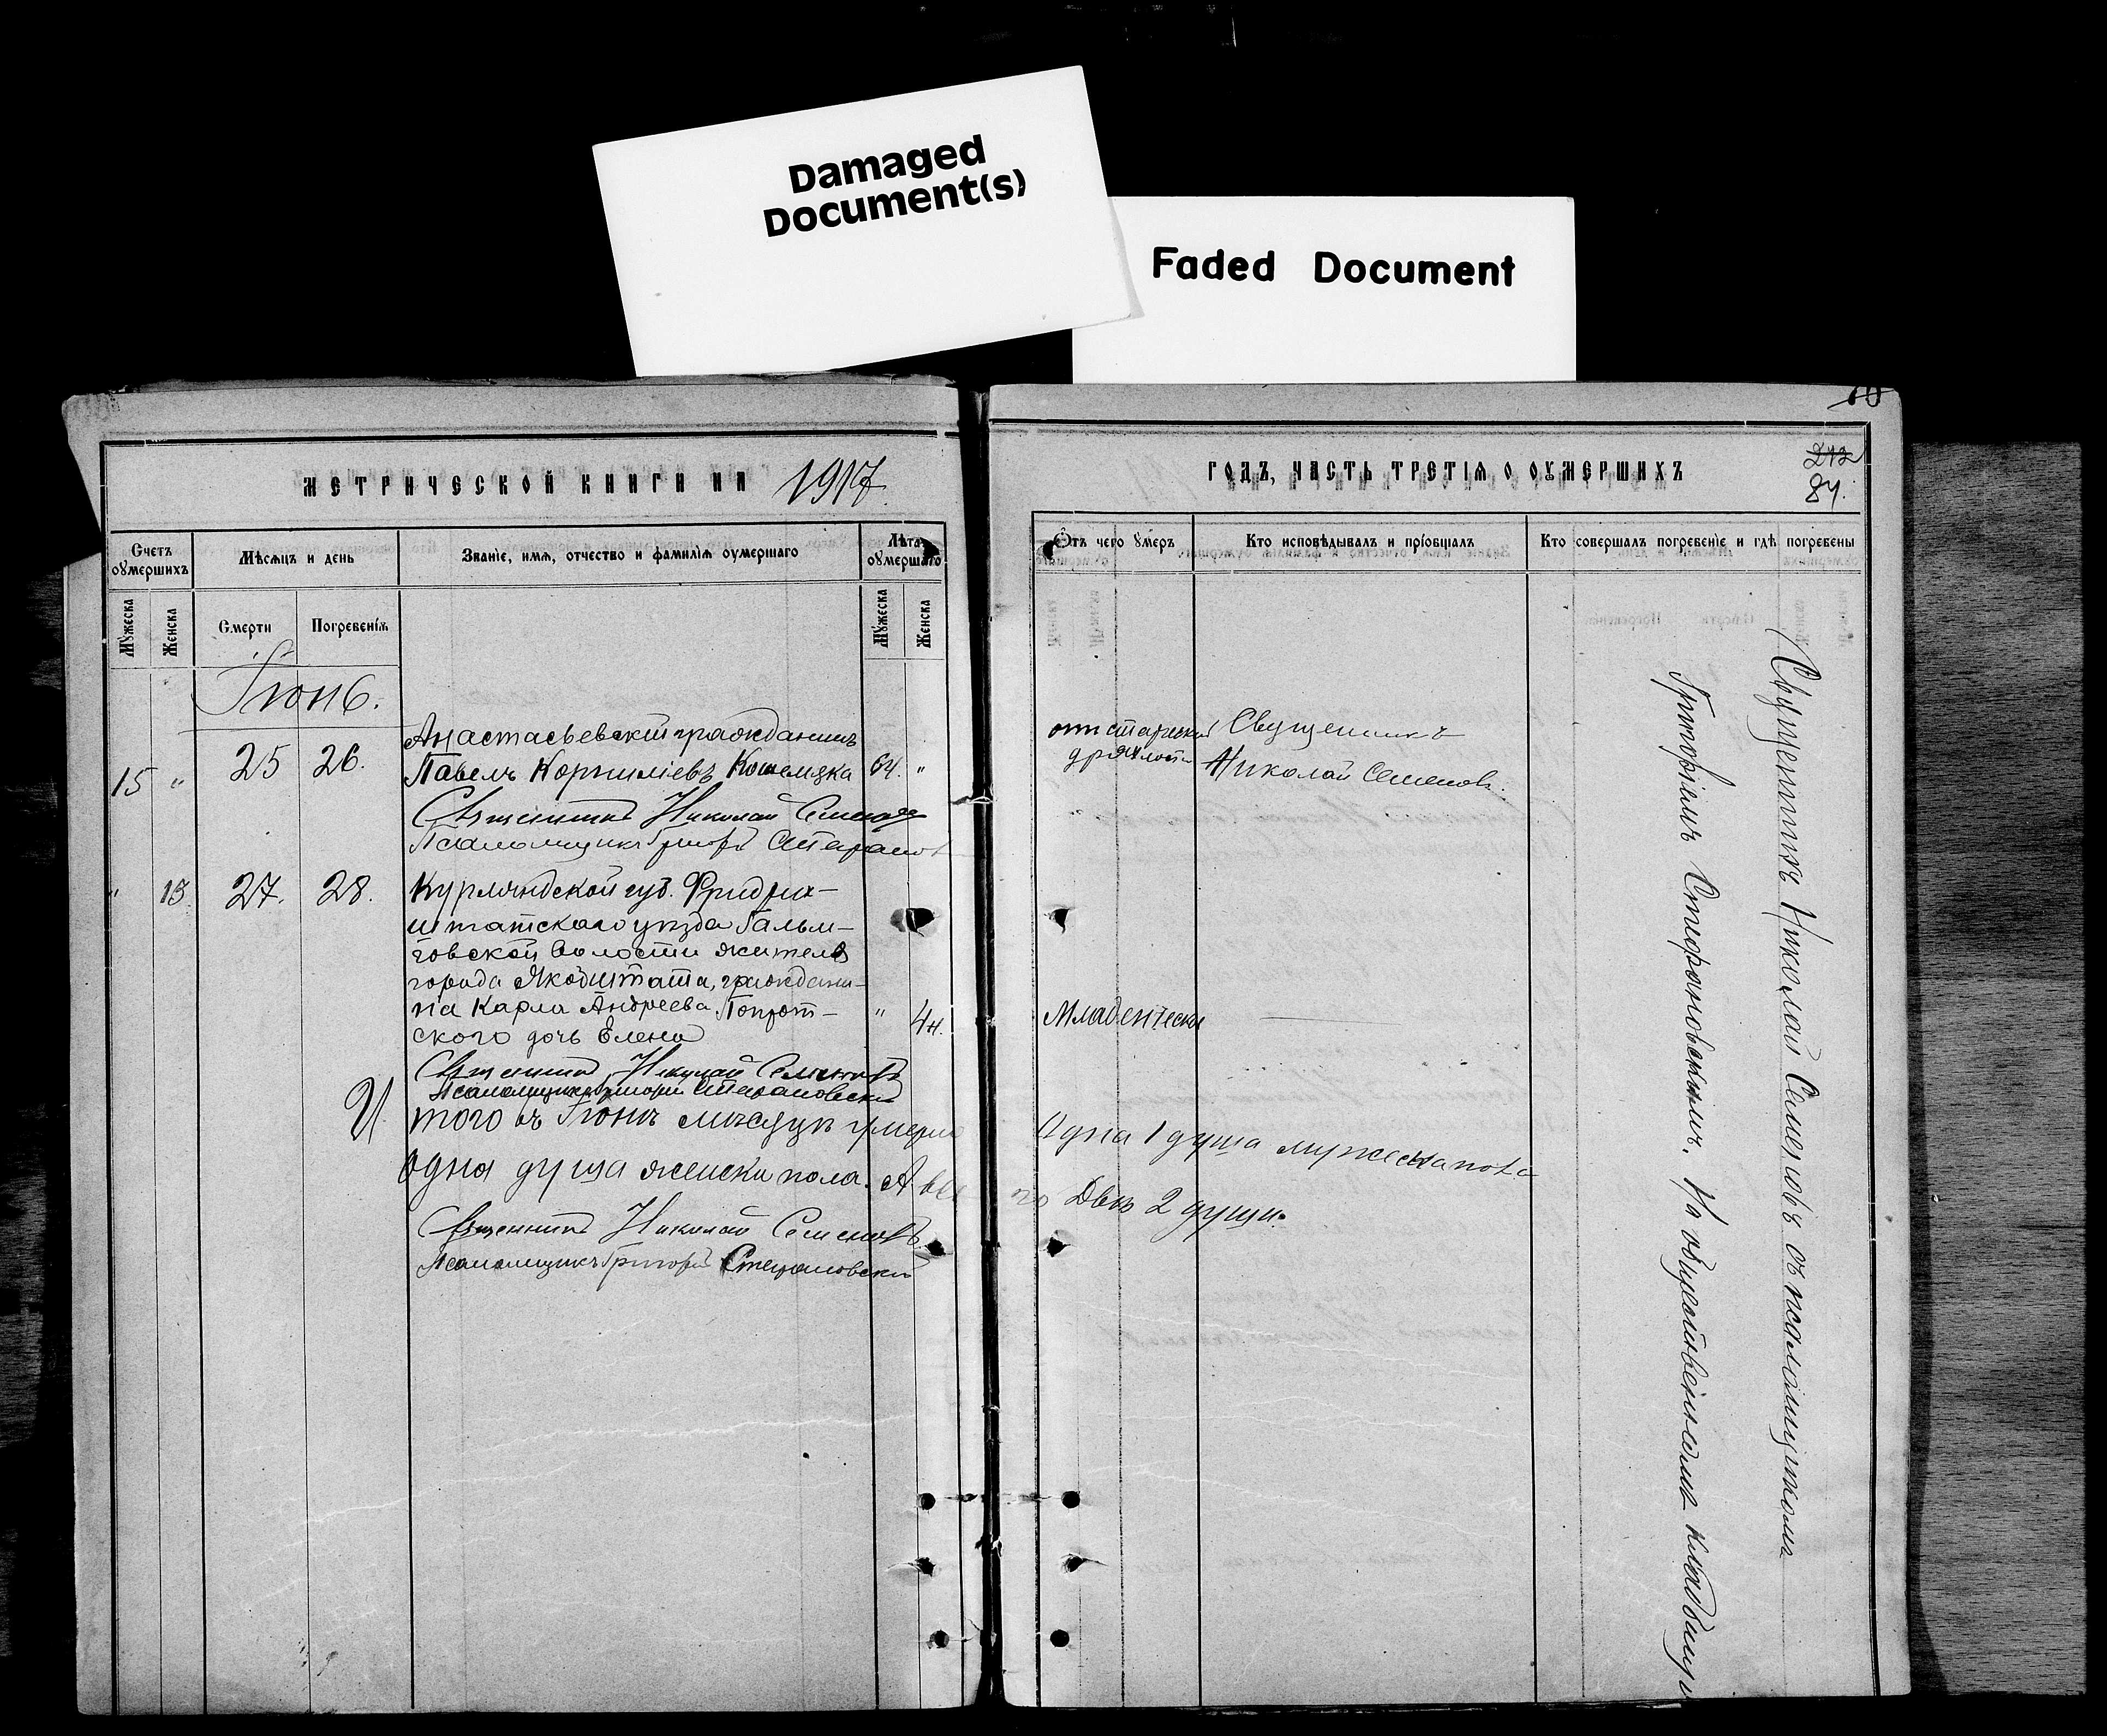 Damaged
Document(s)
Faded Document
МЕТРИЧЕСКОЙ КНИГИ НА 1917
Счетъ оумершихъ
Мѣсяцъ и день
Званіе, имя, отчество и фамилія оумершаго
Лѣта оумершаго
Мужеска
Женска
Смерти
Погребенія
Мужеска
Женска
Іюнь.
15 " 25 26. Анастасьевскій гражданинъ
Павелъ Корниліевъ Кошелзка 64. "
Священникъ Николай Семеновъ
Псаломщикъ Григорій
" 13 27. 28. Курляндской губ. Фридрих-
штатскаго уѣзда Гальм-
говской волости житель
города Якобштата, граждани-
на Карла Андреева
ского дочь Елена " 4н.
Священникъ Николай Семеновъ
Псаломщикъ Григорій Стефановскій
Итого въ Іюнѣ мѣсяцѣ умерло
одна душа женска пола. А все
Священникъ Николай Семеновъ
Псаломщикъ Григорій Стефановскій
10
212
84.
ГОДЪ, ЧАСТЬ ТРЕТІЯ О ОУМЕРШИХЪ
Отъ чего умеръ
Кто исповѣдывалъ и пріобщалъ
Кто совершалъ погребеніе и гдѣ погребены
отъ старческой Священникъ
дряхлости Николай Семеновъ.
Младенческая
Одна 1 душа мужеска пола
го Двѣ 2 души.
Священникъ Николай Семеновъ съ псаломщикомъ
Григоріемъ Стефановскимъ. На общественномъ кладбищѣ